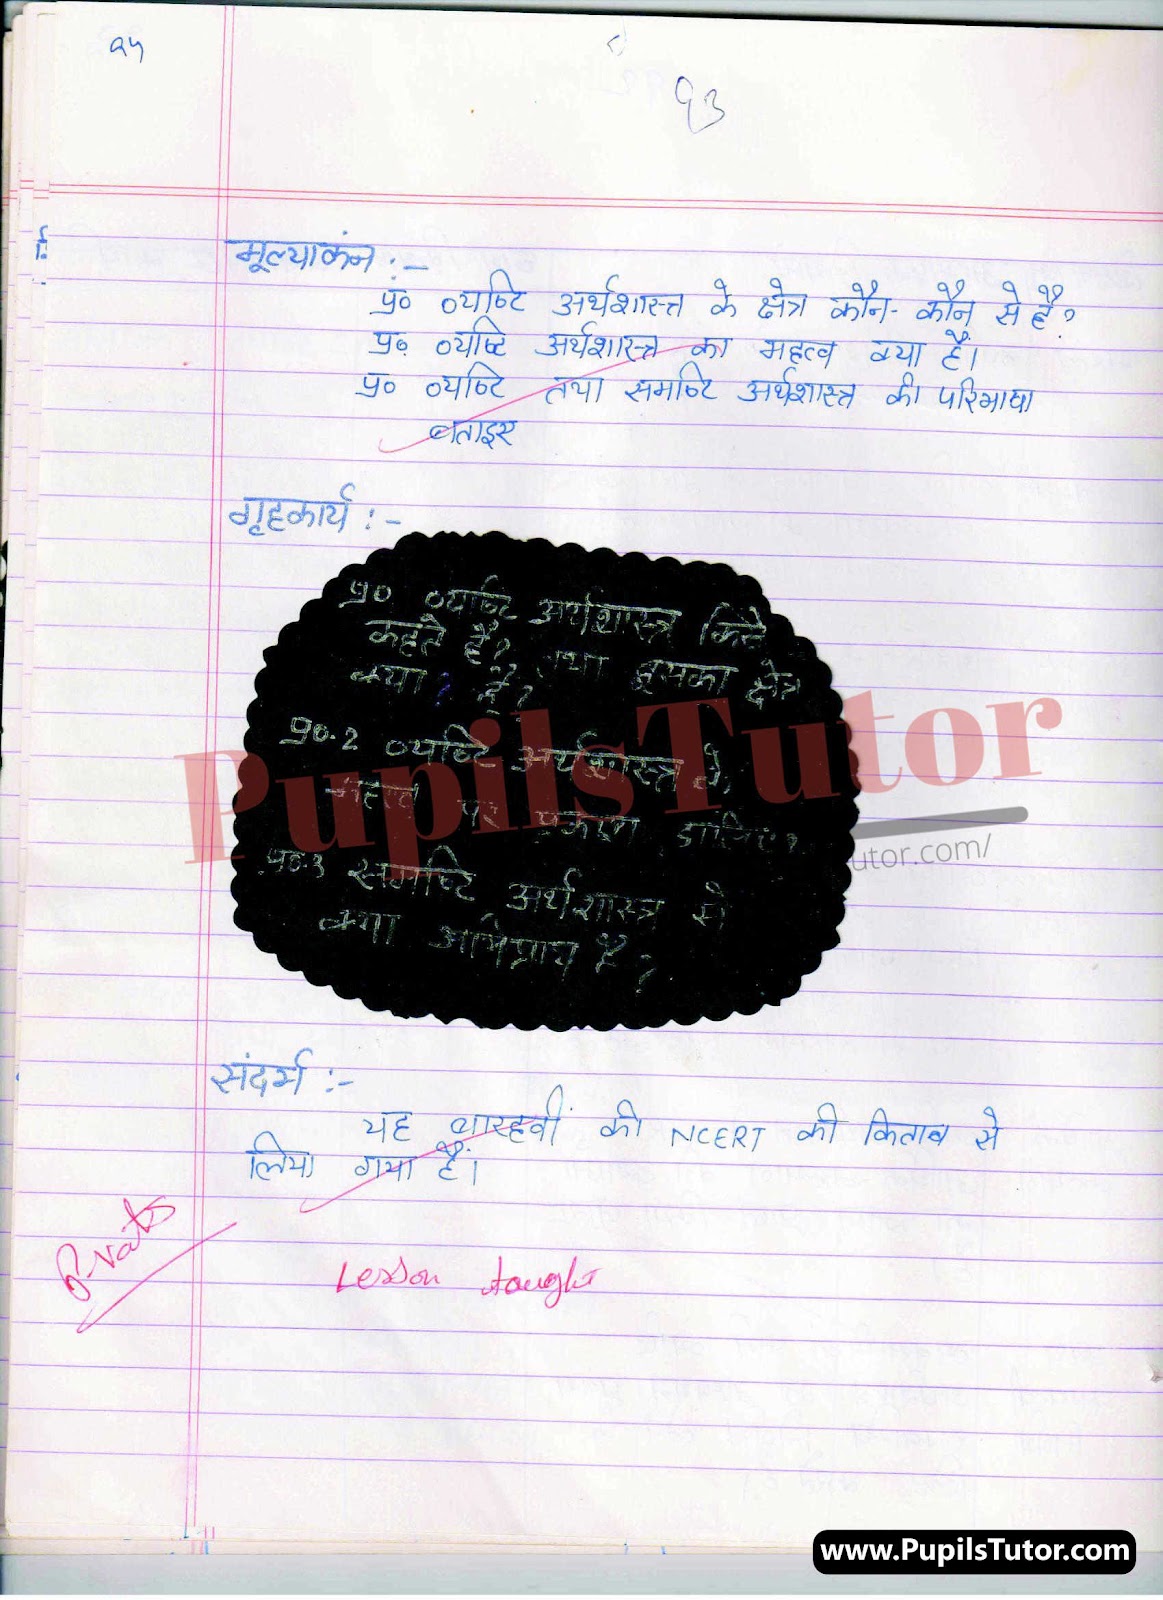 २५
93
मूल्याकंन :-
प्र० व्यष्टि अर्थशास्त्र के क्षेत्र कौन-कौन से है?
प्र० व्यष्टि अर्थशास्त्र का महत्व क्या है।
प्र० व्यष्टि तथा समष्टि अर्थशास्त्र की परिभाषा
बताइए
गृहकार्य :-
प्र० व्यष्टि अर्थशास्त्र किसे
कहते हैं? तथा इसका क्षेत्र
क्या? है?
प्र०.2 व्यष्टि अर्थशास्त्र के
महत्व पर प्रकाश डालिए?
प्र०.3 समष्टि अर्थशास्त्र से
क्या अभिप्राय है?
PupilsTutor
utor.com/
संदर्भ :-
यह ग्यारहवीं की NCERT की किताब से
लिया गया है।
Lesson taught
www.PupilsTutor.com